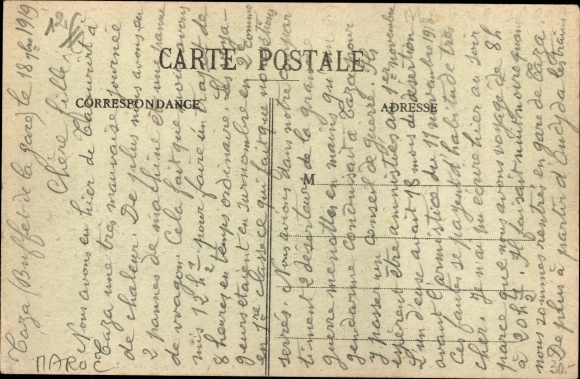 CARTE POSTALE
CORRESPONDANCE
ADRESSE
M
MAROC
Taza Buffet de la gare, le 18 7bre 1919
Chère Lilly
Nous avons eu hier de Taourirt à
Taza une très mauvaise journée
de chaleur. De plus nous avons eu
2 pannes de machine et une panne
de wagon. Cela fait que nous avons
mis 12 h ½ pour faire un trajet de
8 heures en temps ordinaire. Les voya-
geurs étaient en surnombre en 2e comme
en 1re classe ce qui fait que nous étions
serrés. Nous avions dans notre compar
timent 2 déserteurs de la grande
guerre menottes en mains qu'un
gendarme conduisait à Taza pour
y passer en conseil de guerre. Ils
espèrent être amnistiés au 1er novembre
L'un d'eux avait 18 mois de désertion
avant l'armistice du 11 novembre 1918.
Ces fautes se payent d'habitude très
cher. Je n'ai pu écrire hier au soir
parce que nous avons voyagé de 8h
à 20h ½. Il faisait nuit noire quand
nous sommes rentrés en gare de Taza.
De plus à partir d'Oudjda les trains